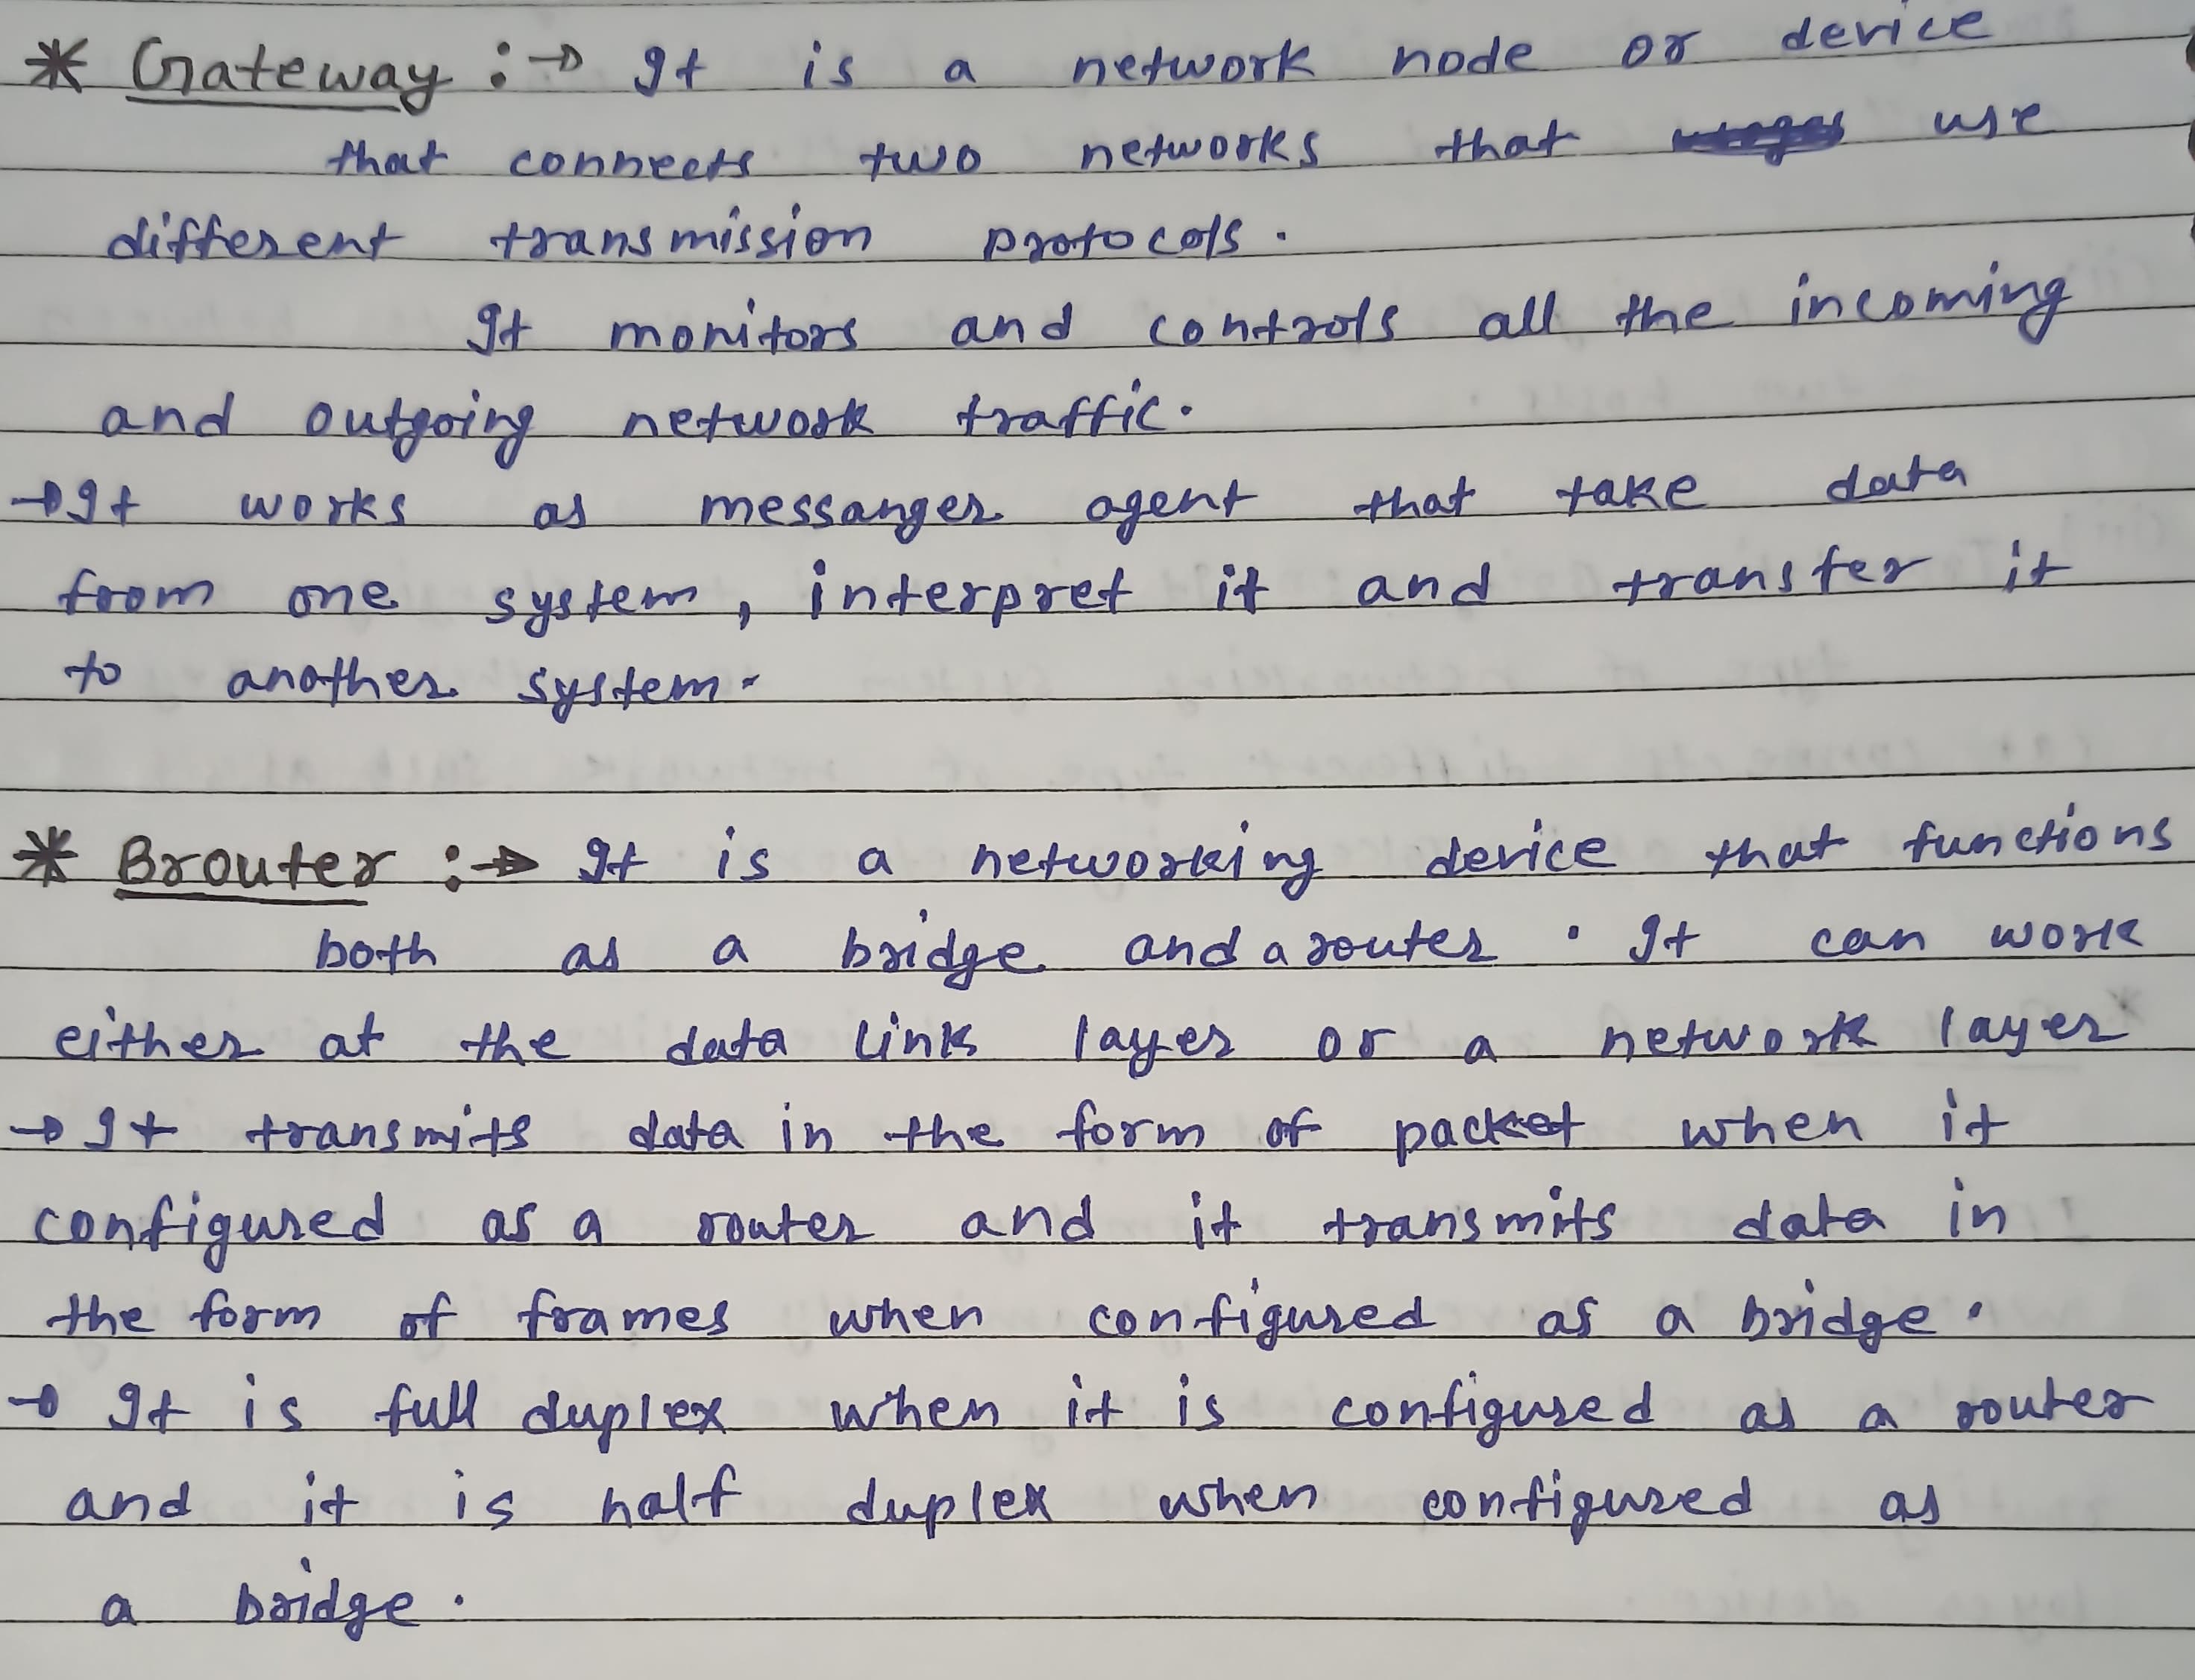 * Gateway :→ It is a network node or device
that connects two networks that use
different transmission protocols.
It monitors and controls all the incoming
and outgoing network traffic.
→ It works as messanger agent that take data
from one system, interpret it and transfer it
to another system.
* Brouter :→ It is a networking device that functions
both as a bridge and a router. It can work
either at the data link layer or a network layer
→ It transmits data in the form of packet when it
configured as a router and it transmits data in
the form of frames when configured as a bridge.
→ It is full duplex when it is configured as a router
and it is half duplex when configured as
a bridge.